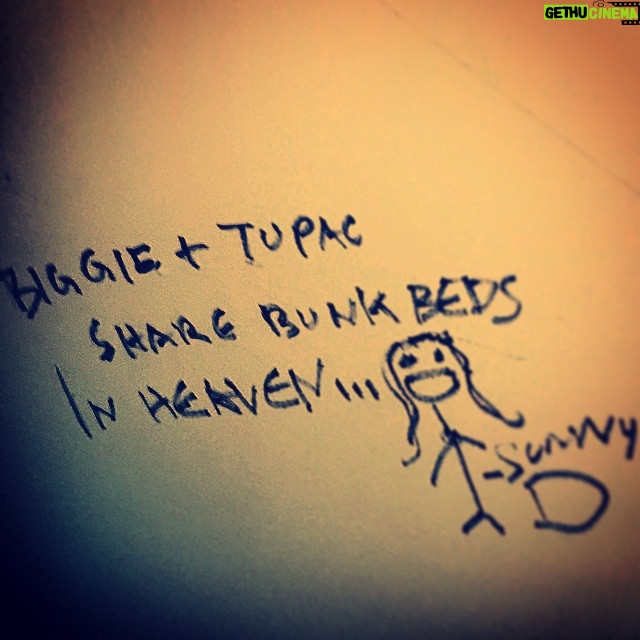 GETHUCINEMA
BIGGIE + TUPAC
SHARE BUNK BEDS
IN HEAVEN...
-SUNNY
D